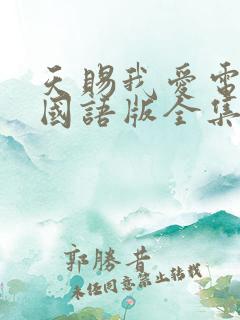 天賜我愛電
國語版全集
郭勝昔
未任同意禁止转载